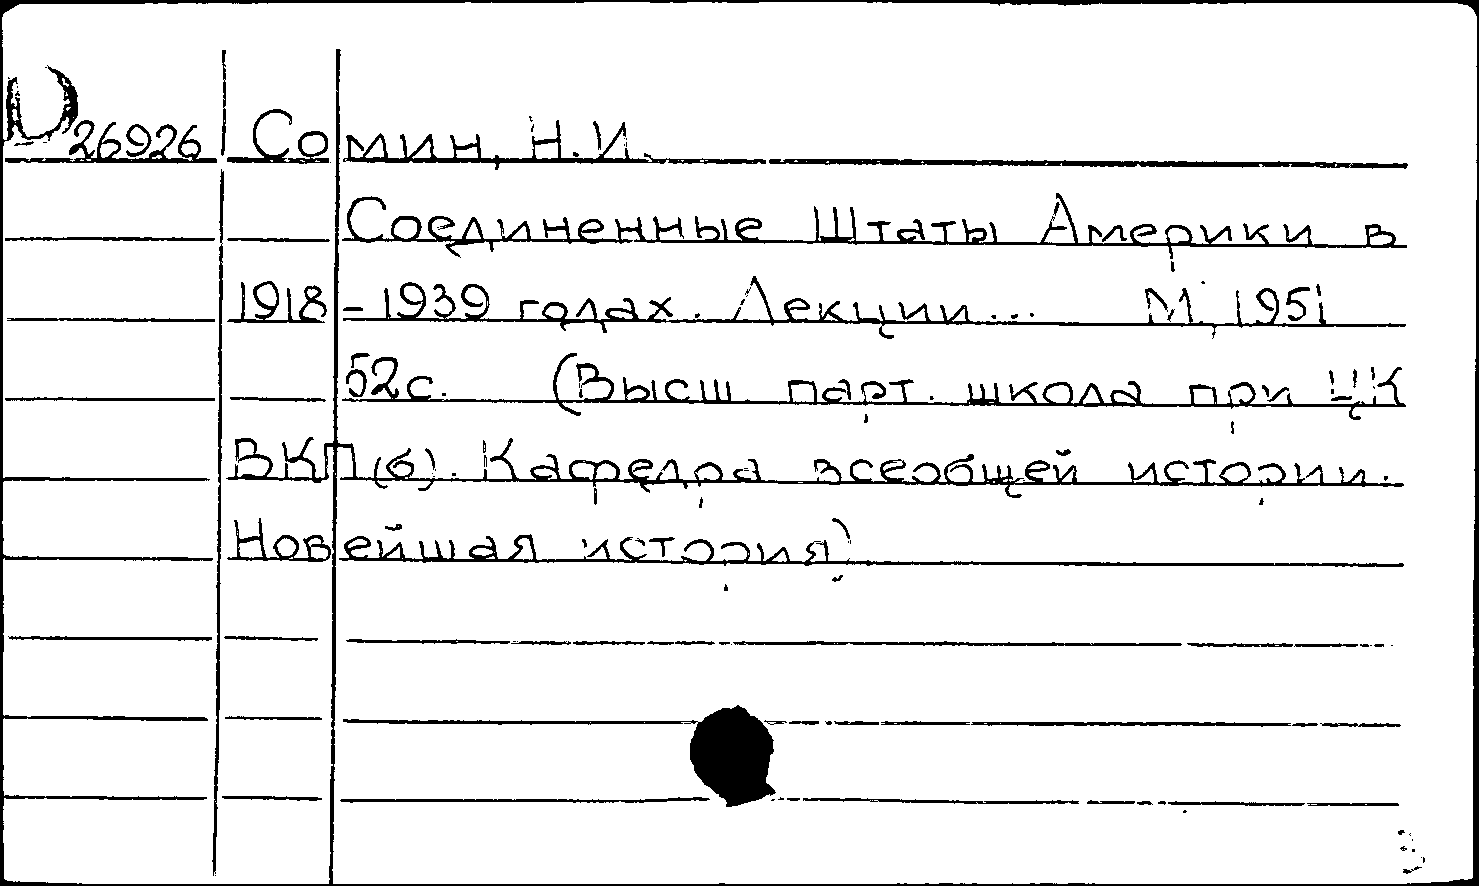 D 26926 Сомин, Н.И.
Соединенные Штаты Америки в
1918-1939 годах. Лекции... М., 1951
52с. (Высш. парт. школа при ЦК
ВКП(б). Кафедра всеобщей истории.
Новейшая история)